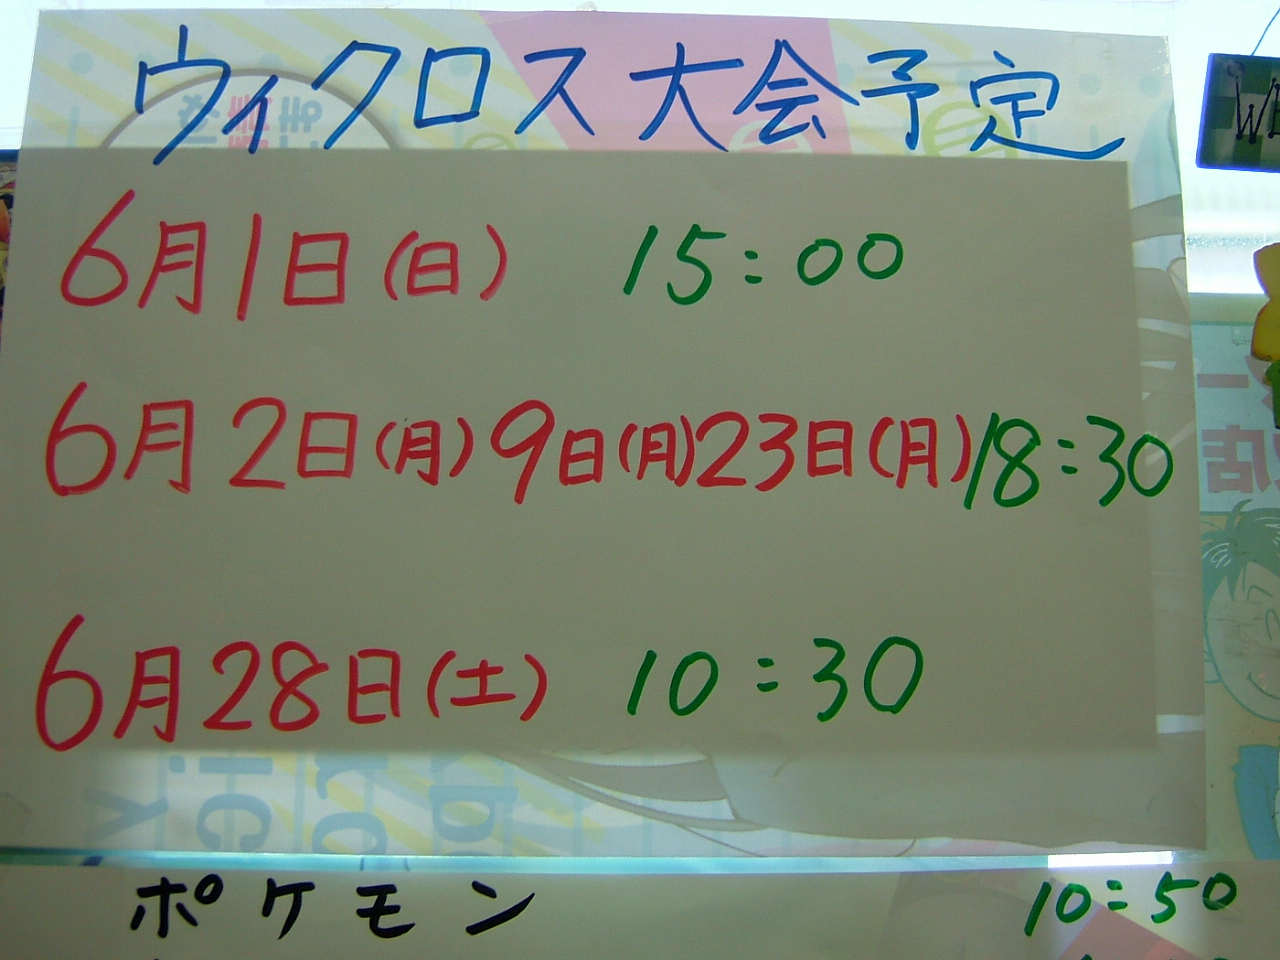 ウィクロス大会予定
6月1日(日) 15:00
6月2日(月)9日(月)23日(月)18:30
6月28日(土) 10:30
ポケモン 10:50
WE
店